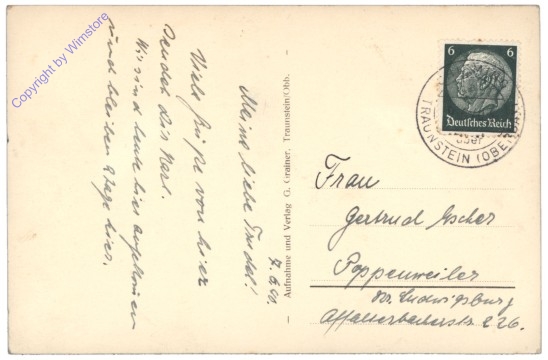 Copyright by Wimstore
7. 6. 40.
Meine liebe Trudel!
Viele Grüße von hier
sendet dir Karl.
Wir sind heute hier angekommen
und bleiben 2 Tage hier.
Aufnahme und Verlag G. Grainer, Traunstein/Obb.
6 6
Deutsches Reich
TRAUNSTEIN (OBERBAY
Frau
Gertrud Escher
Poppenweiler
Kr. Ludwigsburg
Affalterbacherstr. 226.